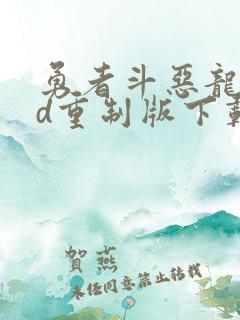 勇者斗惡龍
d重制版下載
賀燕
未经同意禁止转载